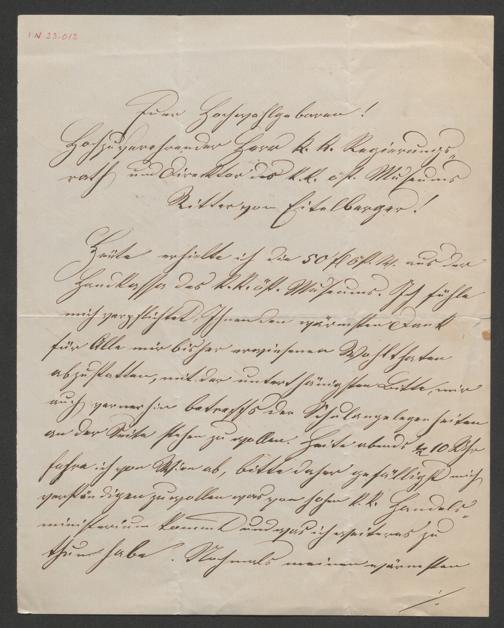 I N 23.012
Euer Hochwohlgeboren!
Hochzuverehrender Herr k. k. Regierungs-
rath und Direktor des k. k. öst. Museums
Ritter von Eitelberger!
Heute erhielte ich die 50 f öst. W. aus der
Handkassa des k. k. öst. Museums. Ich fühle
mich verpflichtet Ihnen den wärmsten Dank
für Alle mir bisher erwiesenen Wohlthaten
abzustatten, mit der unterthänigsten Bitte, mir
auch fernerhin betreffs der Schulangelegenheiten
an der Seite stehen zu wollen. Heute abends 10 Uhr
fahre ich von Wien ab, bitte daher gefälligst mich
verständigen zu wollen was vom hohen k. k. Handels-
ministerium kommt und was ich weiteres zu
thun habe. Nochmals meinen wärmsten
./.